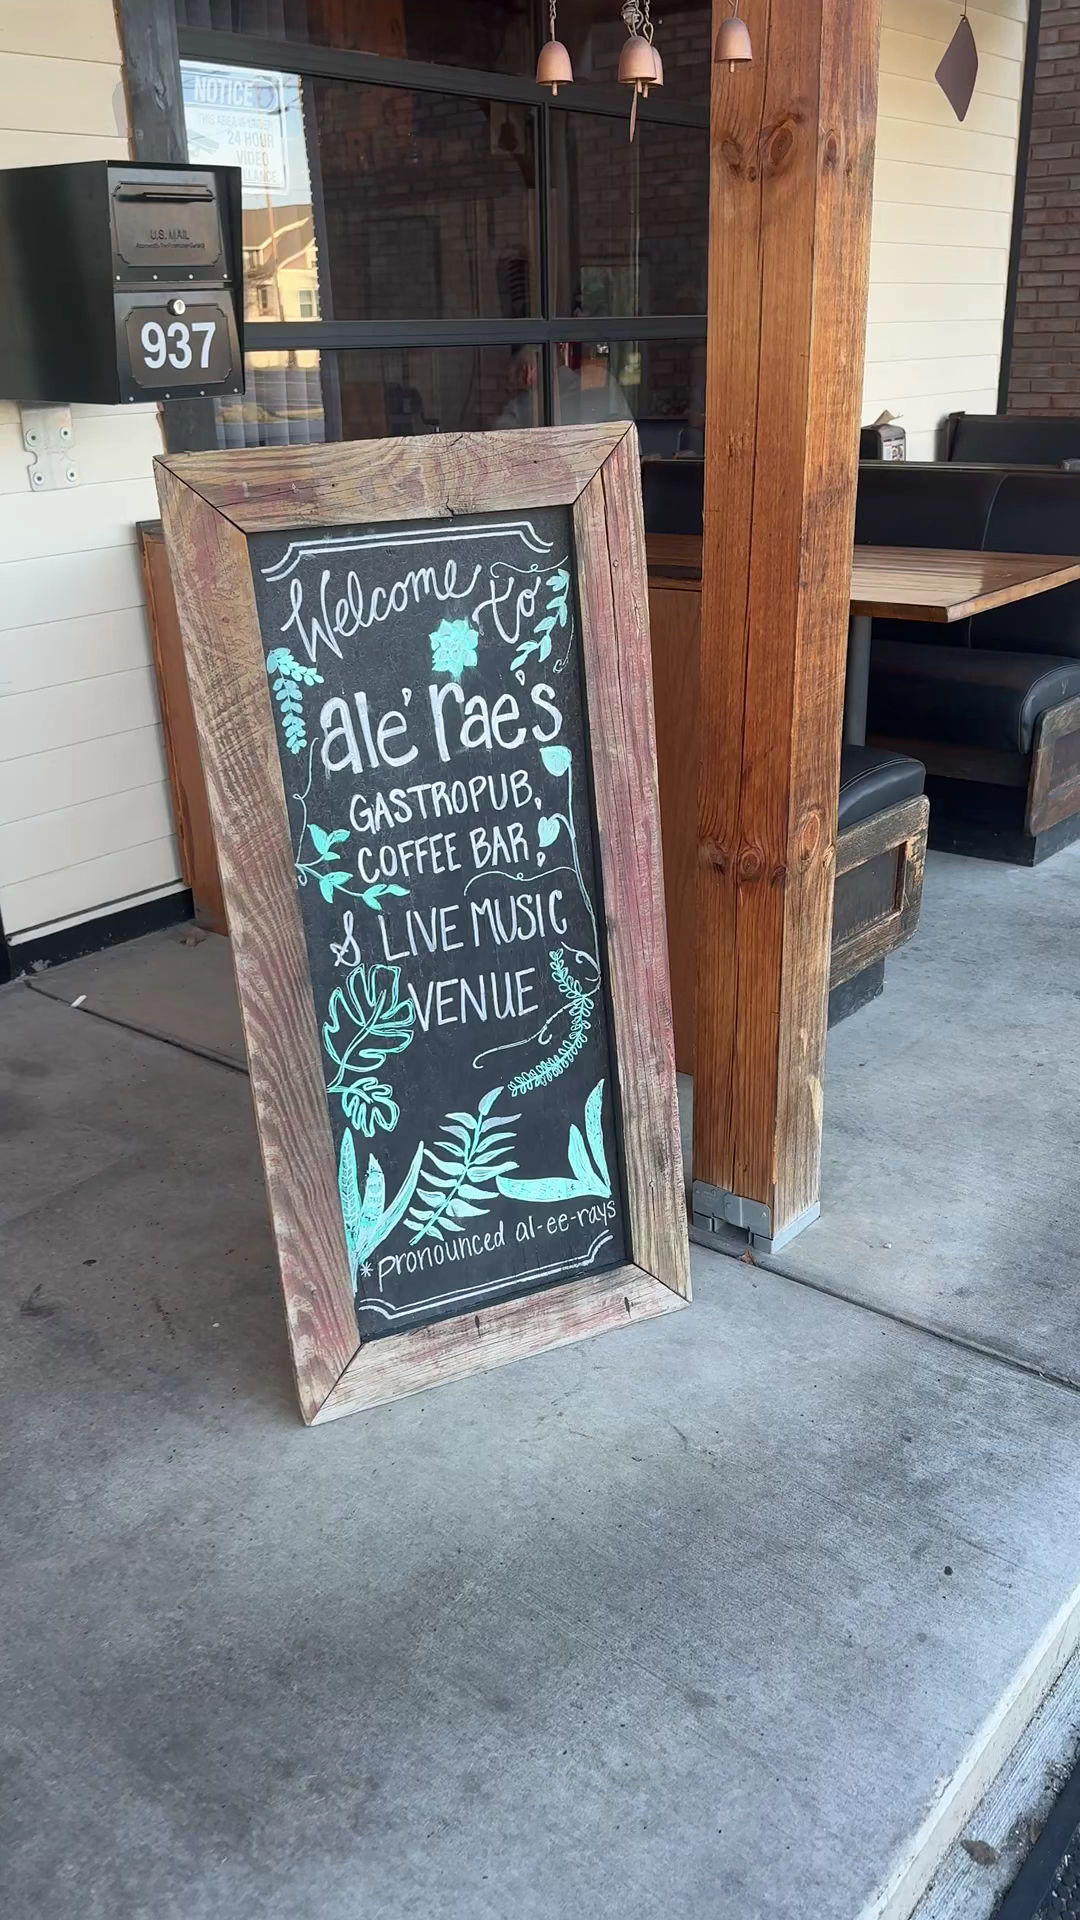 NOTICE
24 HOUR
VIDEO
U.S. MAIL
937
Welcome to
ale' rae's
GASTROPUB,
COFFEE BAR,
& LIVE MUSIC
VENUE
*pronounced al-ee-rays